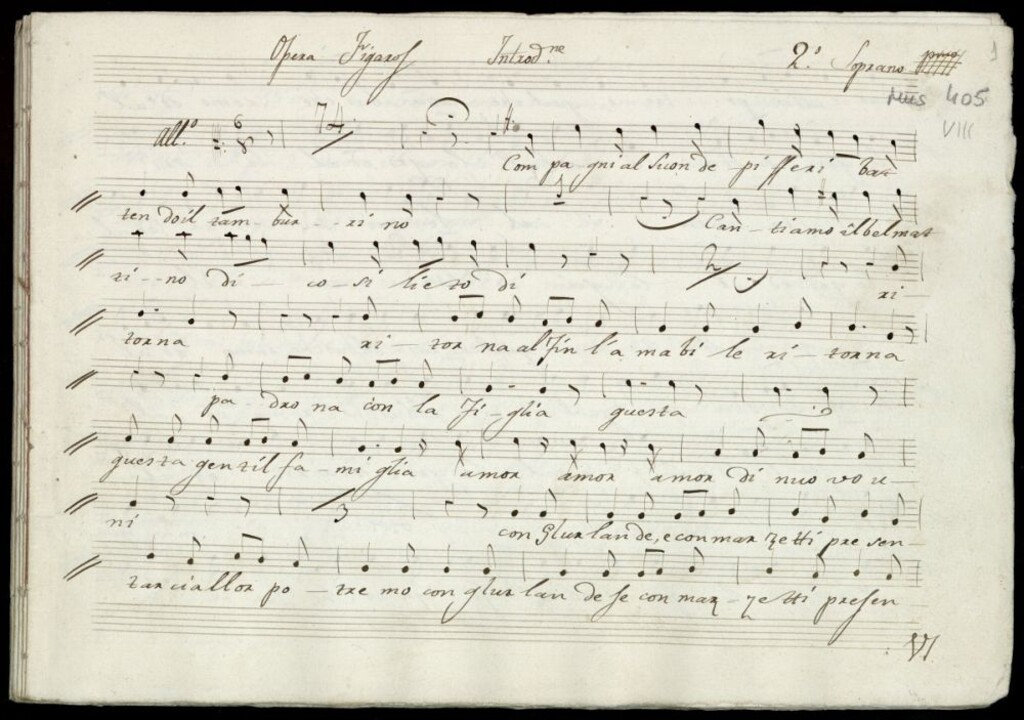 Opera Figaro Introd.ne 2.o Soprano
1
Mus 405
VIII
all.o 6 8 74
Com pa gni al suon de pi fferi bat
ten do il tam bur ri no Can tiamo il bel mat
1
2
ri no di co si lieto di ri
torna ri tor na al fin l'a ma bi le ri torna
pa dro na con la fi glia questa
questa gentil fa mi glia amor amor amor di nuo vo u
3
ni con glur lan de, e con maz zetti pre sen
tarci allor po tre mo con glur lan de se con maz zetti presen